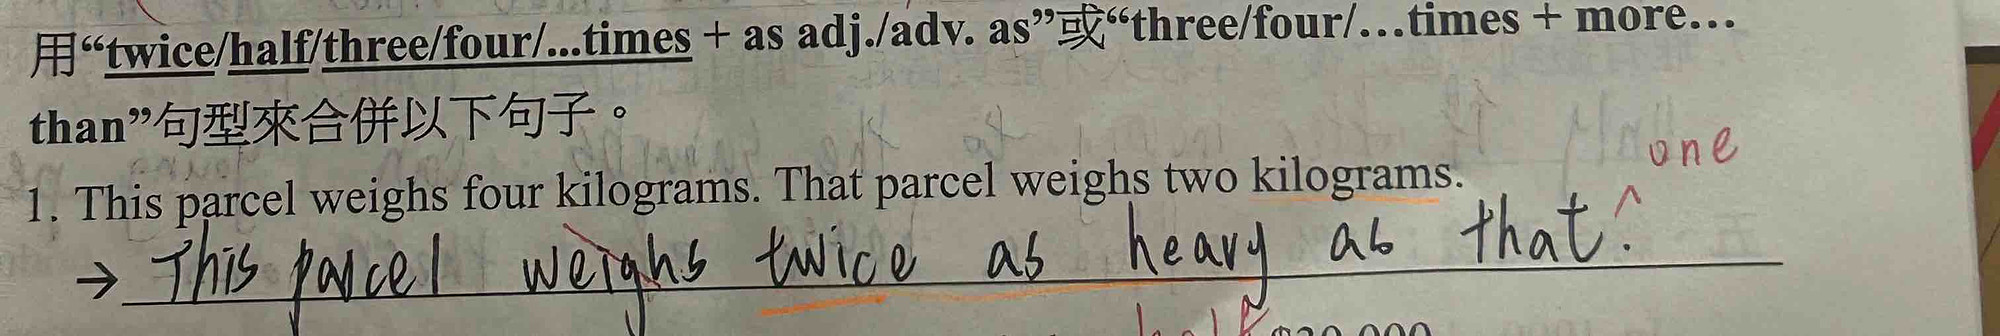 用“twice/half/three/four/...times + as adj./adv. as”或“three/four/…times + more…
than”句型來合併以下句子。
one
1. This parcel weighs four kilograms. That parcel weighs two kilograms.
→ This parcel weighs twice as heavy as that ^.
half $20,000